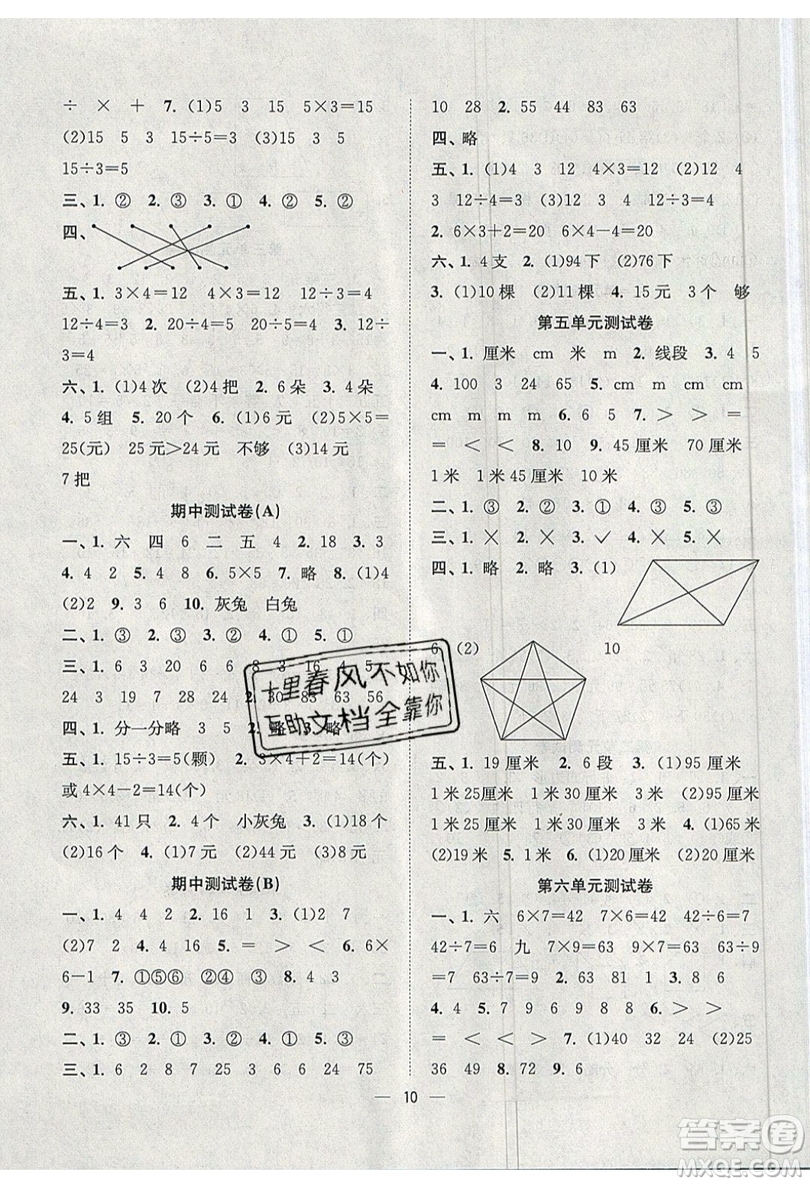 ÷ × + 7. (1)5 3 15 5×3=15
(2)15 5 3 15÷5=3 (3)15 3 5
15÷3=5
三、1. ② 2. ③ 3. ① 4. ② 5. ②
四、
五、1. 3×4=12 4×3=12 12÷3=4
12÷4=3 2. 20÷5=4 3. 12÷
3=4
六、1. (1)4次 (2)4把 2. 6朵 3. 4朵
4. 5组 5. 20个 6. (1)6元 (2)5×5=
25(元) 25元>24元 不够 (3)14元
7把
期中测试卷(A)
一、1. 六 四 6 二 五 4 2. 18 3. 3
4. 4 2 5. 8 6. 5×5 7. 略 8. (1)4
(2)2 9. 3 6 10. 灰兔 白兔
二、1. ③ 2. ③ 3. ② 4. ① 5. ①
三、1. 20 6 6 8 3 16 5
24 3 19 7 28 24 2. 30 83 56
四、1. 分一分略 3 5 2. 略 3. 略
五、1. 15÷3=5(颗) 2. 3×4+2=14(个)
或4×4-2=14(个)
六、1. 41只 2. 4个 小灰兔 3. (1)18个
(2)16个 4. (1)7元 (2)44元 (3)8元
期中测试卷(B)
一、1. 4 4 2. 16 1 3. (1)2 7
(2)7 2 4. 16 5. = > < 6. 6×
6-1 7. ①⑤⑥ ②③④ 8. 4 3
9. 33 35 10. 5
二、1. ③ 2. ① 3. ② 4. ① 5. ③
三、1. 6 2 8 7 6 2 6 24 75
10 28 2. 55 44 83 63
四、略
五、1. (1)4 3 12 4×3=12 (2)12 4
3 12÷4=3 (3)12 3 4 12÷3=4
2. 6×3+2=20 6×4-4=20
六、1. 4支 2. (1)94下 (2)76下
3. (1)10棵 (2)10棵 4. 15元 3个 够
第五单元测试卷
一、1. 厘米 cm 米 m 2. 线段 3. 4 5
4. 100 3 24 65 5. cm m cm m
cm m m 6. 6 5 7. > > =
= < < 8. 10 9. 45厘米 70厘米
1米 1米45厘米 10米
二、1. ③ 2. ② 3. ① 4. ③ 5. ③
三、1. × 2. × 3. ✓ 4. × 5. ×
四、1. 略 2. 略 3. (1)
6 (2) 10
五、1. 19厘米 2. 6段 3. (1)95厘米
1米25厘米 1米30厘米 (2)95厘米
1米25厘米 1米30厘米 4. (1)65米
(2)19米 (3)65米 5. 29厘米
第六单元测试卷
一、1. 六 6×7=42 7×6=42 42÷6=7
42÷7=6 九 7×9=63 9×7=63 63÷9
=7 63÷7=9 2. 63 81 1 3. 6
4. 4 5. 7 9 9 8 6. > >
= < < > 7. (1)27 32 (2)25
36 49 8. 72 9. 6
10
十里春风不如你
互助文档全靠你
答案圈
MXQE.COM